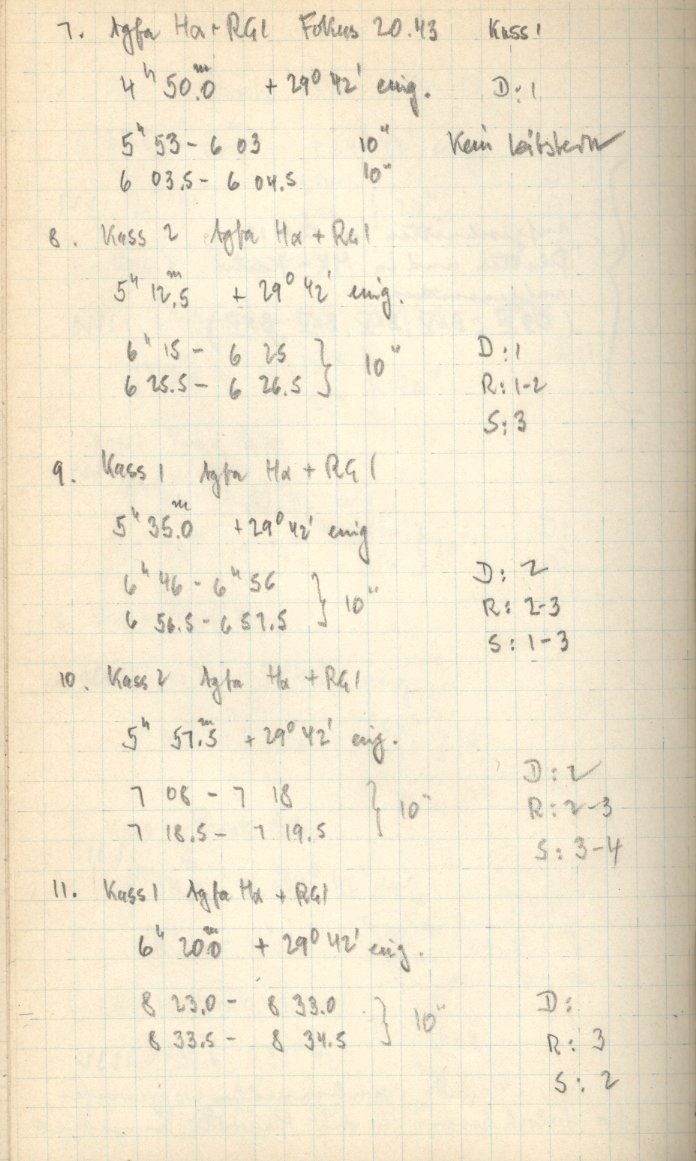 7. Agfa Hα+RG1 Fokus 20.43 Kass 1
4ʰ 50.ᵐ0 +29° 42' eing. D: 1
5ʰ 53 - 6 03 10" Kein Leitstern
6 03.5 - 6 04.5 10"
8. Kass 2 Agfa Hα + RG1
5ʰ 12.ᵐ5 + 29° 42' eing.
6ʰ 15 - 6 25 } 10" D: 1
6 25.5 - 6 26.5 R: 1-2
S: 3
9. Kass 1 Agfa Hα + RG1
5ʰ 35.ᵐ0 +29° 42' eing
6ʰ 46 - 6ʰ 56 } 10" D: 2
6 56.5 - 6 57.5 R: 2-3
S: 1-3
10. Kass 2 Agfa Hα + RG1
5ʰ 57.ᵐ5 +29° 42' eing.
7 08 - 7 18 } 10" D: 2
7 18.5 - 7 19.5 R: 2-3
S: 3-4
11. Kass 1 Agfa Hα + RG1
6ʰ 20.ᵐ0 + 29° 42' eing.
8 23.0 - 8 33.0 } 10" D:
8 33.5 - 8 34.5 R: 3
S: 2